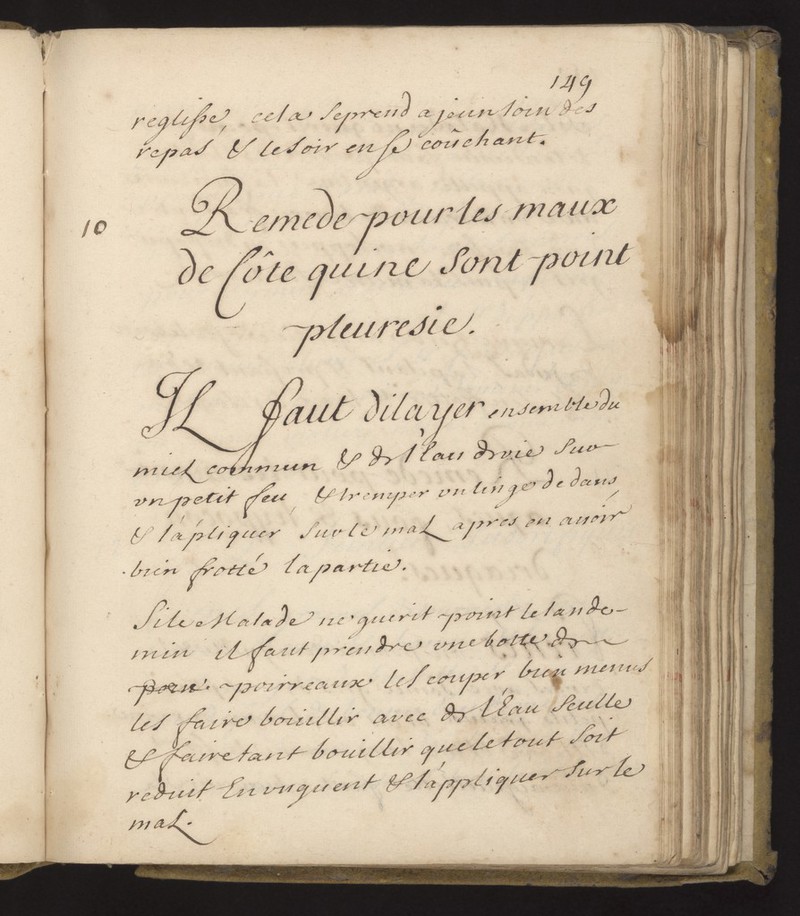 149
reglisse, cela se prend a jeun loin des
repas & le soir en se coûchant.
10 Remede pour les maux
de Côte qui ne sont point
pleuresie.
Il faut dilayer ensemble du
miel commun & de l'eau de vie sur
un petit feu, & tremper un linge dedans,
& l'apliquer sur le mal apres en auoir
bien frotté la partie.
Si le Malade ne guerit point le lande-
min il faut prendre une botte de
poirreaux les couper bien menus
les faire boüillir avec de l'Eau seulle
& faire tant bouillir que le tout soit
reduit En unguent & l'appliquer sur le
mal.